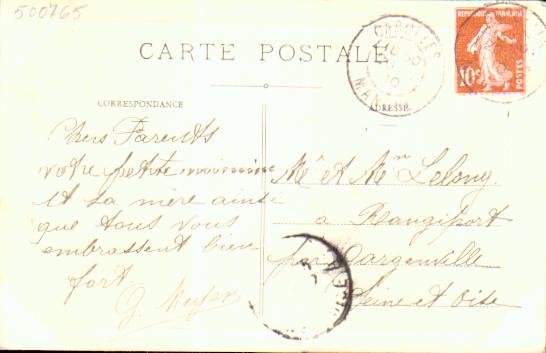 500765
CARTE POSTALE
CAROLLES
MANCHE
REPUBLIQUE FRANÇAISE
10c
POSTES
CORRESPONDANCE
ADRESSE
Chers Parents
votre petite
et sa mère ainsi
que tous vous
embrassent bien
fort
G. Meyer
Mr et Mme Lelong
a Rangiport
par Gargenville
Seine et Oise